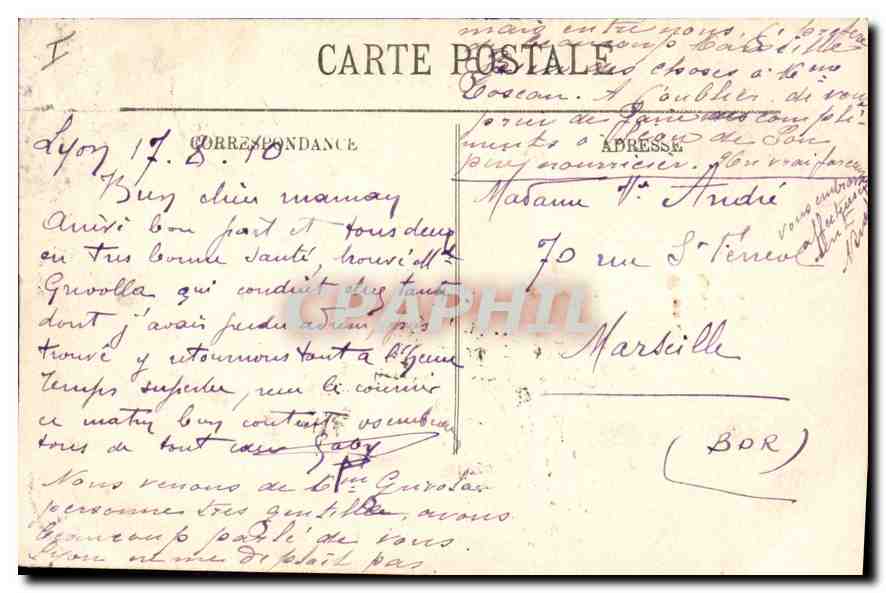 I
CARTE POSTALE
CORRESPONDANCE
ADRESSE
Lyon 17.8.10
Bien chère maman
Arrivé bon port et tous deux
en très bonne santé, trouvé Mde
Grivolla qui conduit chez tante
dont j'avais perdu adresse,
trouvé y retournons tout à l'heure
temps superbe, reçu le courrier
ce matin bien content
tous de tout Gaby
Nous venons de Grivolas
personne très gentille, avons
beaucoup parlé de vous.
Lyon ne me déplait pas
mais entre nous, je préfère
beaucoup Marseille
des choses à Mme
Toscan. A oublier de vous
prier de faire mes compli-
ments à de son
père nourricier. Un vrai farceur
vous embrasse
affectueusement
Madame Ve André
70 rue St Ferréol
Marseille
(BDR)
CPAPHIL